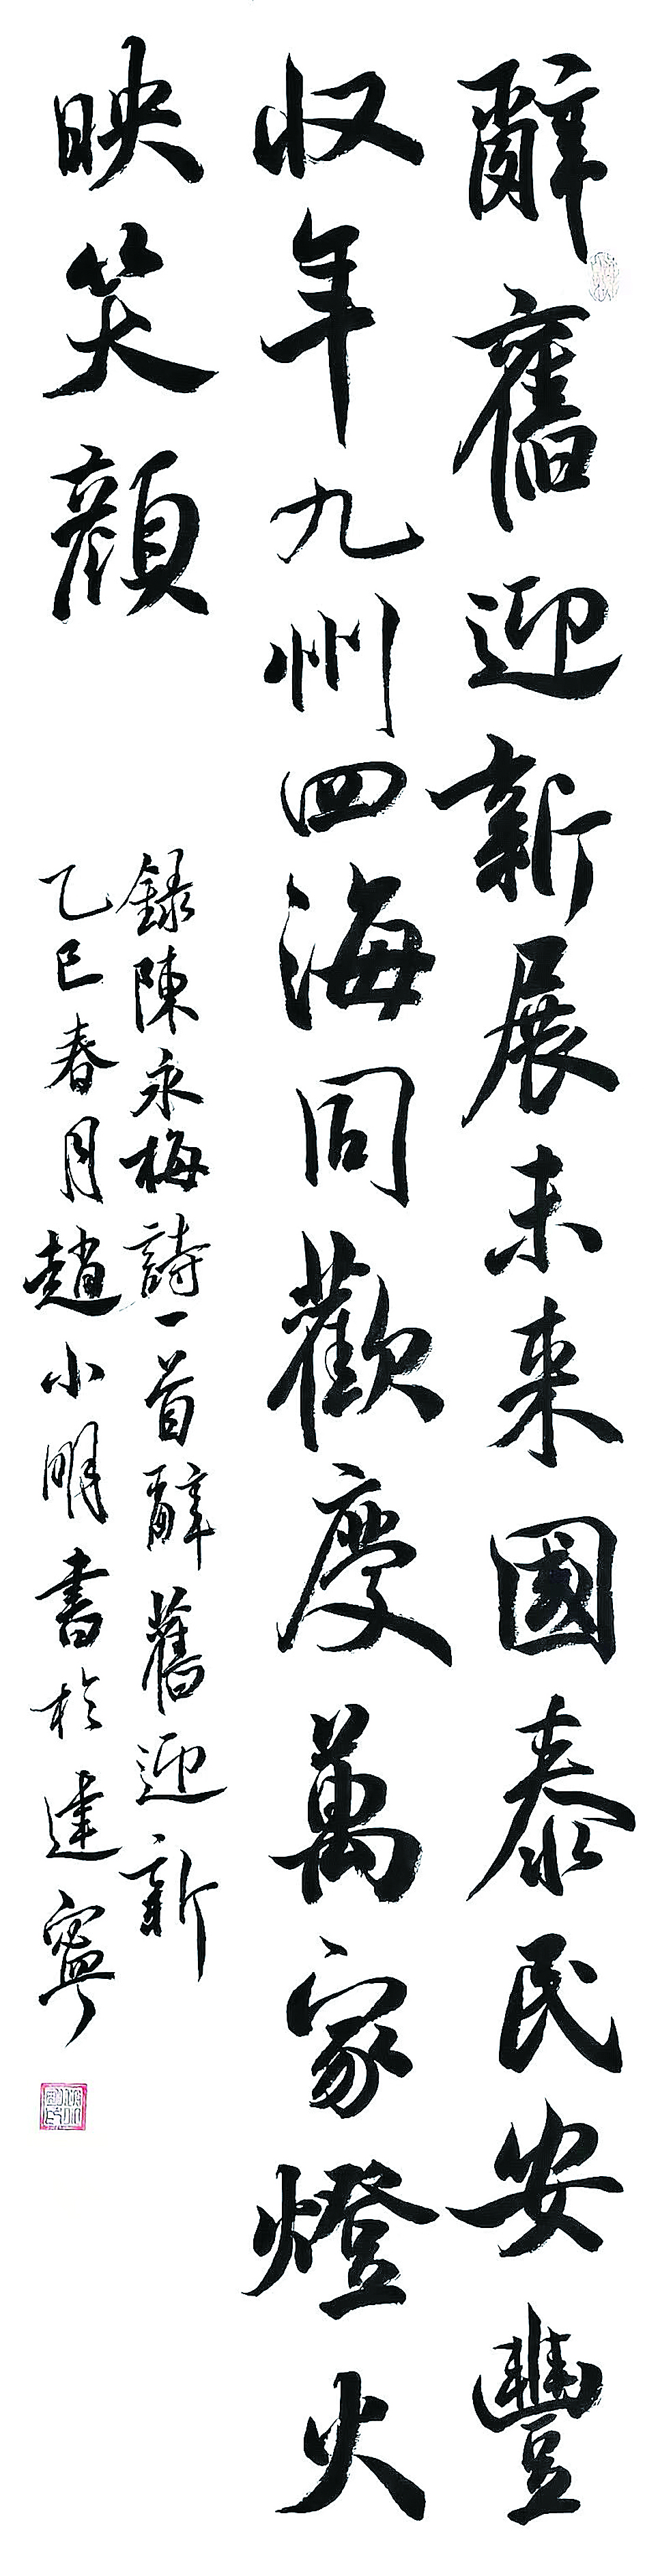 辭舊迎新展未来國泰民安豐
収年九州四海同歡慶萬家燈火
映笑顔
録陳永梅詩一首辭舊迎新
乙巳春月趙小明書於建寧